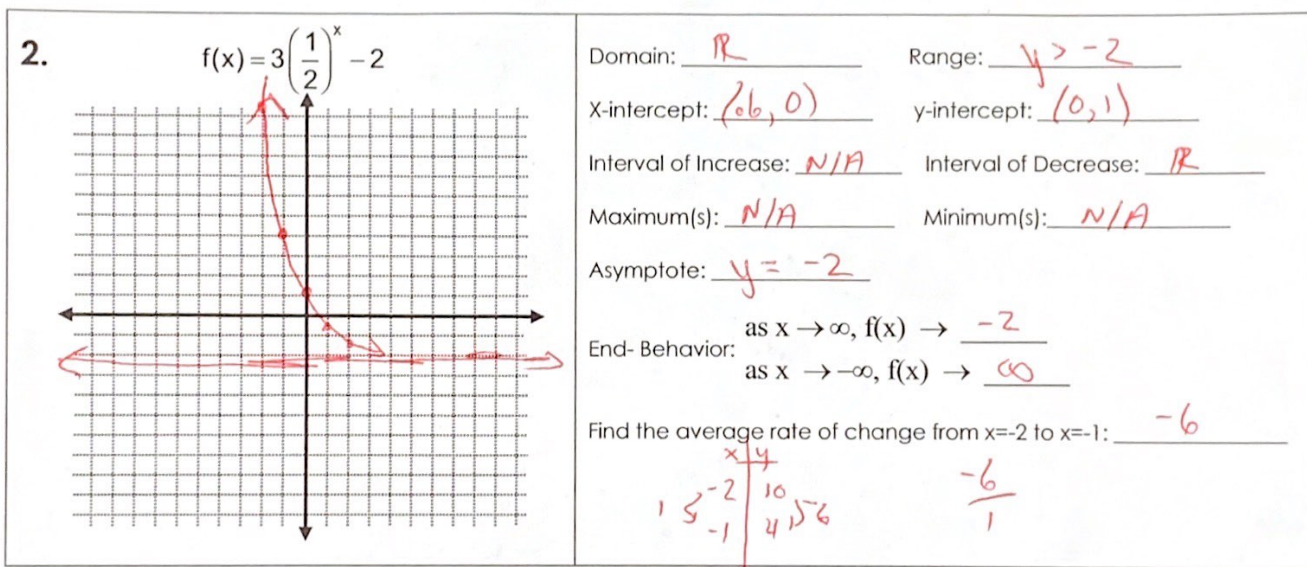 2. f(x) = 3(1/2)^x - 2
Domain: ℝ Range: y > -2
X-intercept: (.6, 0) y-intercept: (0,1)
Interval of Increase: N/A Interval of Decrease: ℝ
Maximum(s): N/A Minimum(s): N/A
Asymptote: y = -2
as x → ∞, f(x) → -2
End- Behavior:
as x → -∞, f(x) → ∞
Find the average rate of change from x=-2 to x=-1: -6
x | y
-2 | 10
1 -6
-1 | 4
-6/1